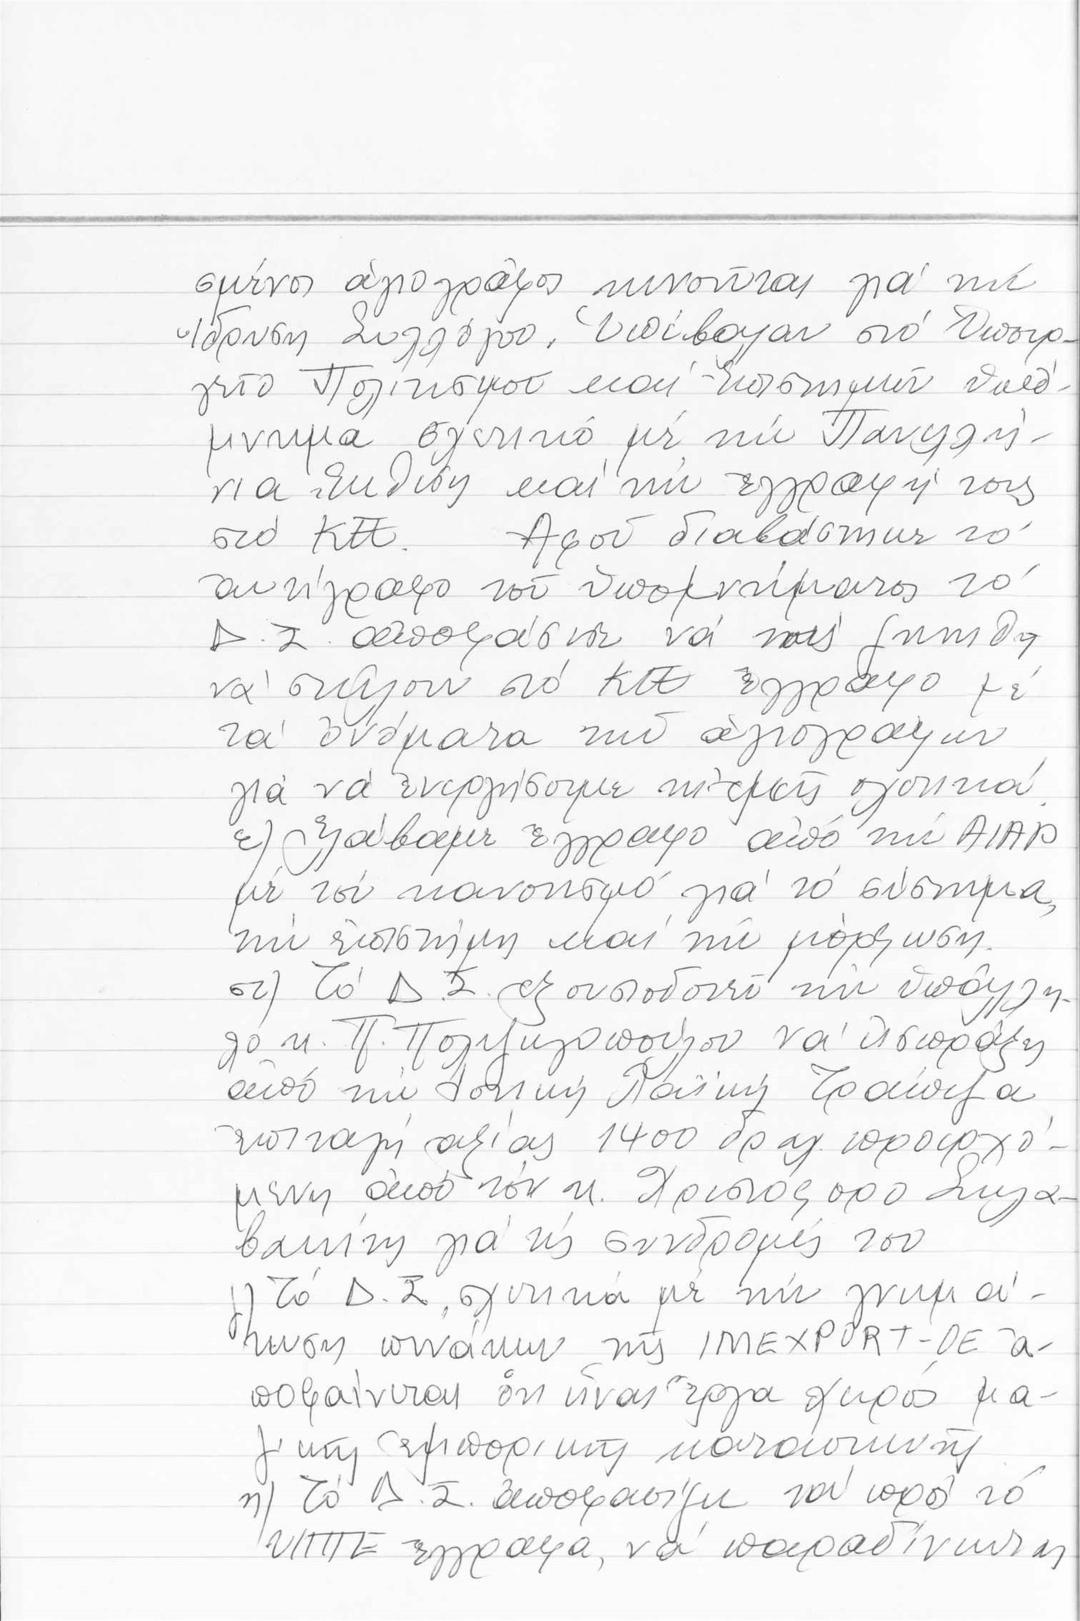 σμένοι ἁγιογράφοι κινοῦνται γιά τήν
ἵδρυση Συλλόγου. Ὑπέβαλαν στό Ὑπουρ-
γεῖο Πολιτισμοῦ καί Ἐπιστημῶν ὑπό-
μνημα σχετικό μέ τήν Πανελλή-
νια Ἔκθεση καί τήν ἐγγραφή τους
στό ΚΠ. Ἀφοῦ διαβάστηκε τό
ἀντίγραφο τοῦ ὑπομνήματος τό
Δ.Σ. ἀποφάσισε νά τούς ζητηθῆ
νά στείλουν στό ΚΠ ἔγγραφο μέ
τά ὀνόματα τῶν ἁγιογράφων
γιά νά ἐνεργήσουμε κι ἐμεῖς σχετικά.
ε) Ἐλάβαμε ἔγγραφο ἀπό τήν AIAP
μέ τόν κανονισμό γιά τό σύστημα,
τήν ἐπιστήμη καί τήν μόρφωση.
στ) Τό Δ.Σ. ἐξουσιοδοτεῖ τήν ὑπάλλη-
λο κ. Π. Πολυζωγοπούλου νά εἰσπράξη
ἀπό τήν Ἰονική Λαϊκή Τράπεζα
ἐπιταγή ἀξίας 1400 δραχ. προερχό-
μενη ἀπό τόν κ. Χριστόφορο Σκλα-
βενίτη γιά τίς συνδρομές του
ζ) Τό Δ.Σ. σχετικά μέ τήν γνωμά-
τευση πινάκων τῆς IMEXPORT-DE ἀ-
ποφαίνεται ὅτι εἶναι ἔργα χειρός μα-
ζικῆς ἐμπορικῆς κατασκευῆς
η) Τό Δ.Σ. ἀποφασίζει τά πρός τό
ΥΠΠΕ ἔγγραφα, νά παραδίνωνται